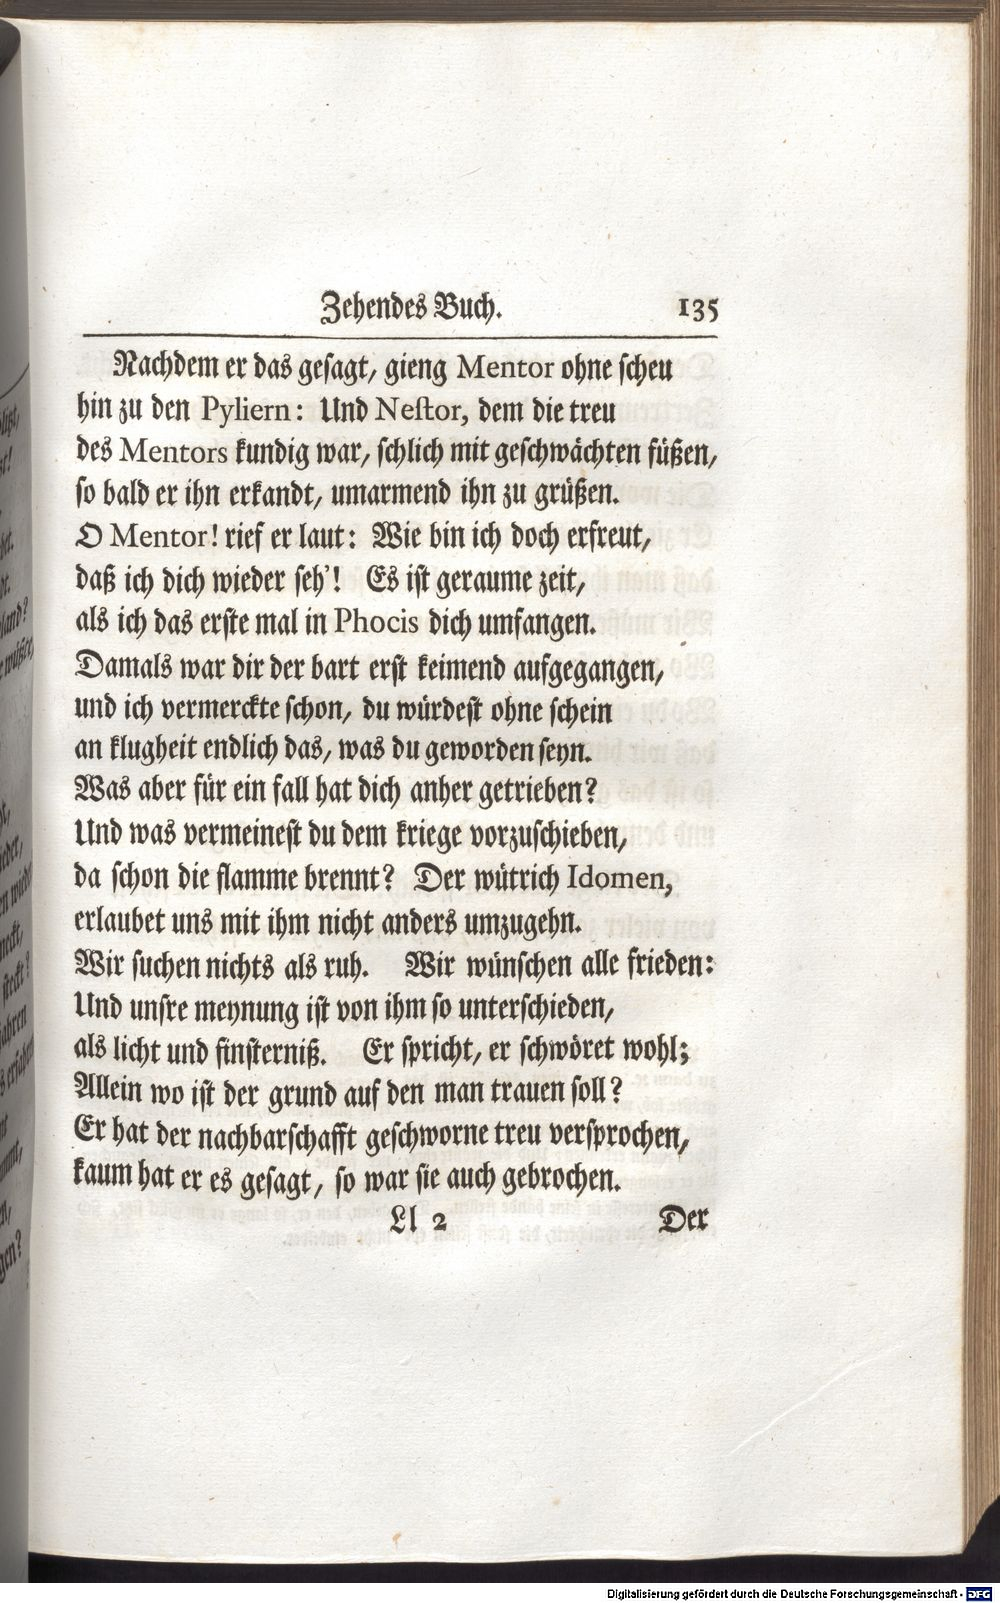 Zehendes Buch. 135
Nachdem er das gesagt, gieng Mentor ohne scheu
hin zu den Pyliern: Und Nestor, dem die treu
des Mentors kundig war, schlich mit geschwächten füßen,
so bald er ihn erkandt, umarmend ihn zu grüßen.
O Mentor! rief er laut: Wie bin ich doch erfreut,
daß ich dich wieder seh'! Es ist geraume zeit,
als ich das erste mal in Phocis dich umfangen.
Damals war dir der bart erst keimend aufgegangen,
und ich vermerckte schon, du würdest ohne schein
an klugheit endlich das, was du geworden seyn.
Was aber für ein fall hat dich anher getrieben?
Und was vermeinest du dem kriege vorzuschieben,
da schon die flamme brennt? Der wütrich Idomen,
erlaubet uns mit ihm nicht anders umzugehn.
Wir suchen nichts als ruh. Wir wünschen alle frieden:
Und unsre meynung ist von ihm so unterschieden,
als licht und finsterniß. Er spricht, er schwöret wohl;
Allein wo ist der grund auf den man trauen soll?
Er hat der nachbarschafft geschworne treu versprochen,
kaum hat er es gesagt, so war sie auch gebrochen.
Ll 2 Der
Digitalisierung gefördert durch die Deutsche Forschungsgemeinschaft - DFG